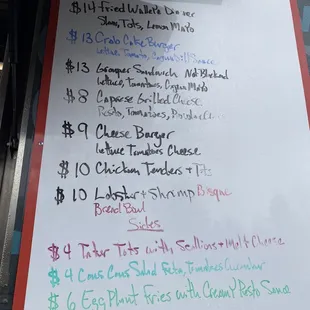 $14 Fried Walleye Dinner
Slaw, Tots, Lemon Mayo
$13 Crab Cake Burger
Lettuce, Tomato, Sauce
$13 Grouper Sandwich
Lettuce, Tomatoes, Cajun Mayo
$8 Caprese Grilled Cheese
Pesto, Tomatoes,
$9 Cheese Burger
Lettuce Tomatoes Cheese
$10 Chicken Tenders + Tots
$10 Lobster + Shrimp Bisque
Bread Bowl
Sides
$4 Tatur Tots with Scallions + Melt Cheese
$4 Cous Cous Salad Feta, Tomatoes Cucumber
$6 Egg Plant Fries with Creamy Pesto Sauce